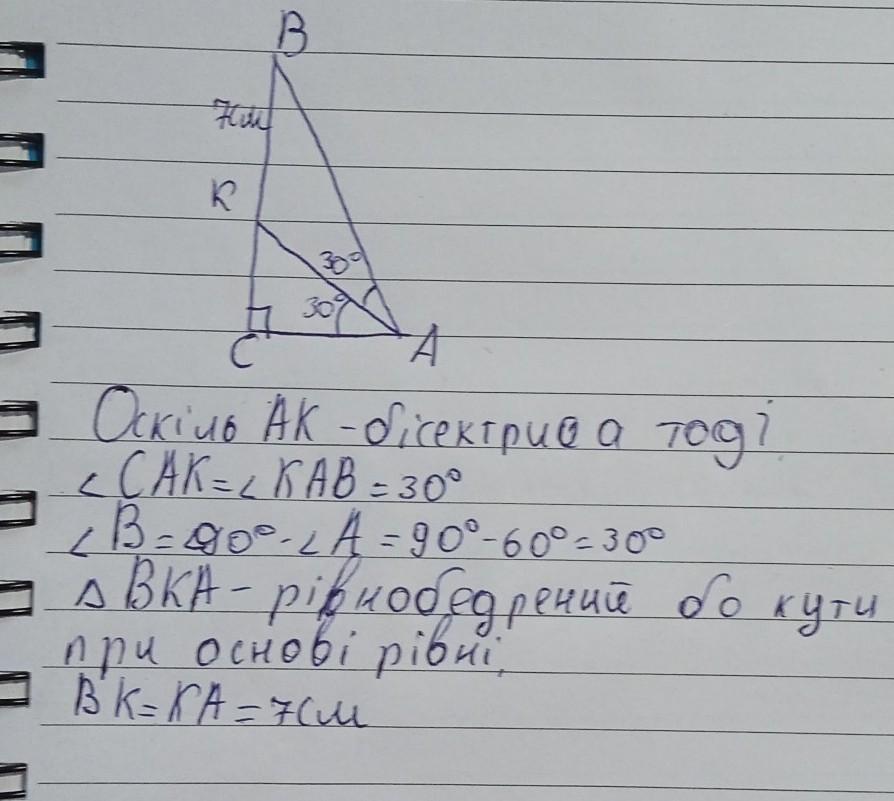 B
7см
K
30°
30°
C
A
Оскіль AK - бісектриса тоді
∠CAK=∠KAB=30°
∠B=90°-∠A=90°-60°=30°
△BKA - рівнобедрений бо кути
при основі рівні,
BK=KA=7см